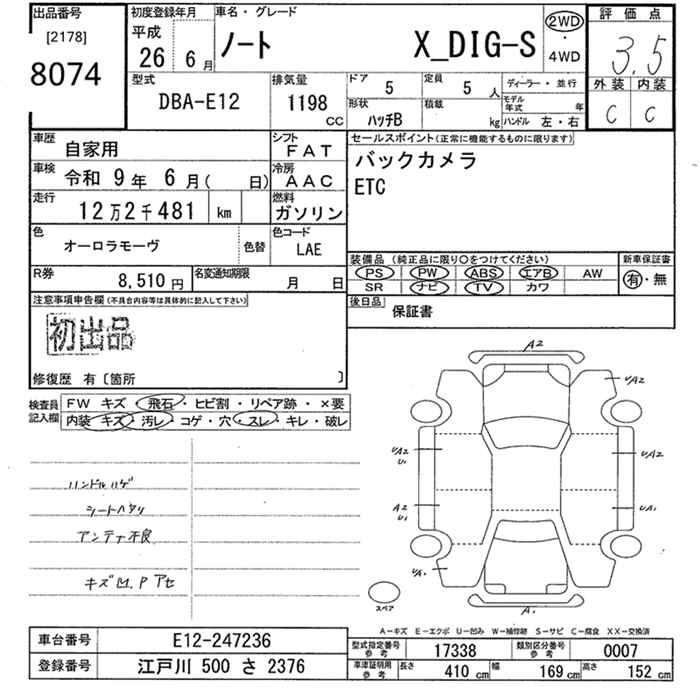 出品番号
[2178]
8074
初度登録年月
平成
26 6月
車名・グレード
ノート X_DIG-S
2WD
・
4WD
評価点
3.5
外装 内装
C C
型式
DBA-E12
排気量
1198
CC
ドア
5
定員
5 人
形状
ハッチB
積載
kg
ディーラー・並行
モデル年式 年
ハンドル 左・右
車歴
自家用
シフト
FAT
車検
令和 9年 6月( 日)
冷房
AAC
走行
12万2千481 km
燃料
ガソリン
色
オーロラモーヴ
色替
色コード
LAE
R券
8,510円
名変通知期限
月 日
セールスポイント(正常に機能するものに限ります)
バックカメラ
ETC
装備品(純正品に限り○をつけてください)
PS PW ABS エアB AW
SR ナビ TV カワ
新車保証書
有・無
後日品
保証書
注意事項申告欄(不具合内容等は具体的に記入して下さい)
初出品
修復歴 有〔箇所 〕
検査員記入欄
FW キズ・飛石・ヒビ割・リペア跡・×要
内装 キズ・汚レ・コゲ・穴・スレ・キレ・破レ
ハンドルハゲ
シートヘタリ
アンテナ不良
キズ凹.P アセ
A2
UA2
UA2
U1
UA2
A2
U1
UA1
UA1
A1
スペア
A-キズ E-エクボ U-凹み W-補修跡 S-サビ C-腐食 XX-交換済
車台番号
E12-247236
登録番号
江戸川 500 さ 2376
型式指定番号
参考
17338
類別区分番号
参考
0007
車庫証明用
参考
長さ
410 cm
幅
169 cm
高さ
152 cm